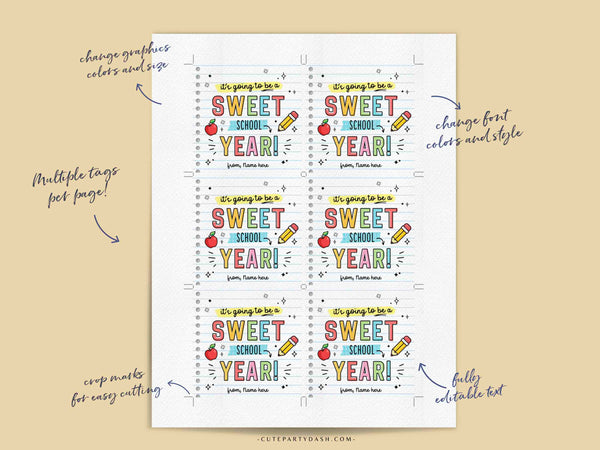 change graphics
colors and size
it's going to be a
SWEET
SCHOOL
YEAR!
from, Name here
it's going to be a
SWEET
SCHOOL
YEAR!
from, Name here
change font
colors and style
Multiple tags
per page!
it's going to be a
SWEET
SCHOOL
YEAR!
from, Name here
it's going to be a
SWEET
SCHOOL
YEAR!
from, Name here
it's going to be a
SWEET
SCHOOL
YEAR!
from, Name here
it's going to be a
SWEET
SCHOOL
YEAR!
from, Name here
crop marks
for easy cutting
fully
editable text
-CUTEPARTYDASH.COM-